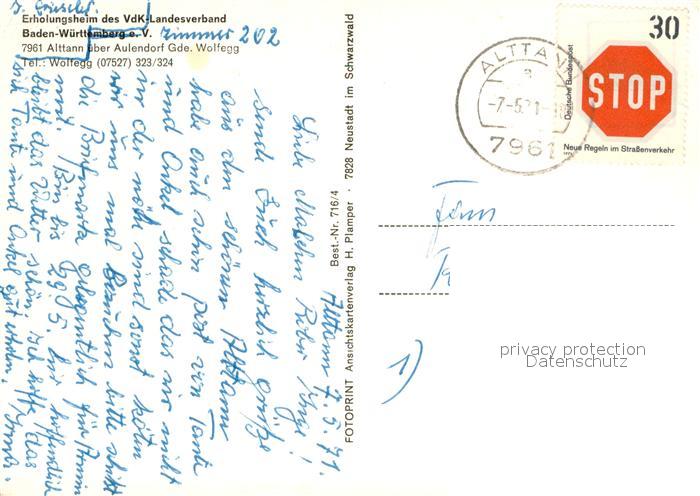 Erholungsheim des VdK-Landesverband
Baden-Württemberg e. V. Zimmer 202
7961 Alttann über Aulendorf Gde. Wolfegg
Tel.: Wolfegg (07527) 323/324
Alttann 7.5.71.
Liebe
sende Euch herzlich Grüße
aus dem schönen Alttann
habe auch schon Post von Tante
und Onkel schade das wir nicht
in der nähe sind sonst
wir uns mal bitte
die Briefmarke gelegentlich für
mit. Bin bis 29.5. hier hoffentlich
bleibt das Wetter schön ich hoffe das
sich Tante und Onkel gut erholen.
FOTOPRINT Ansichtskartenverlag H. Plamper · 7828 Neustadt im Schwarzwald
Best.-Nr. 716/4
ALTTANN
a
-7-5.71-
7961
30
Deutsche Bundespost
STOP
Neue Regeln im Straßenverkehr
1)
privacy protection
Datenschutz